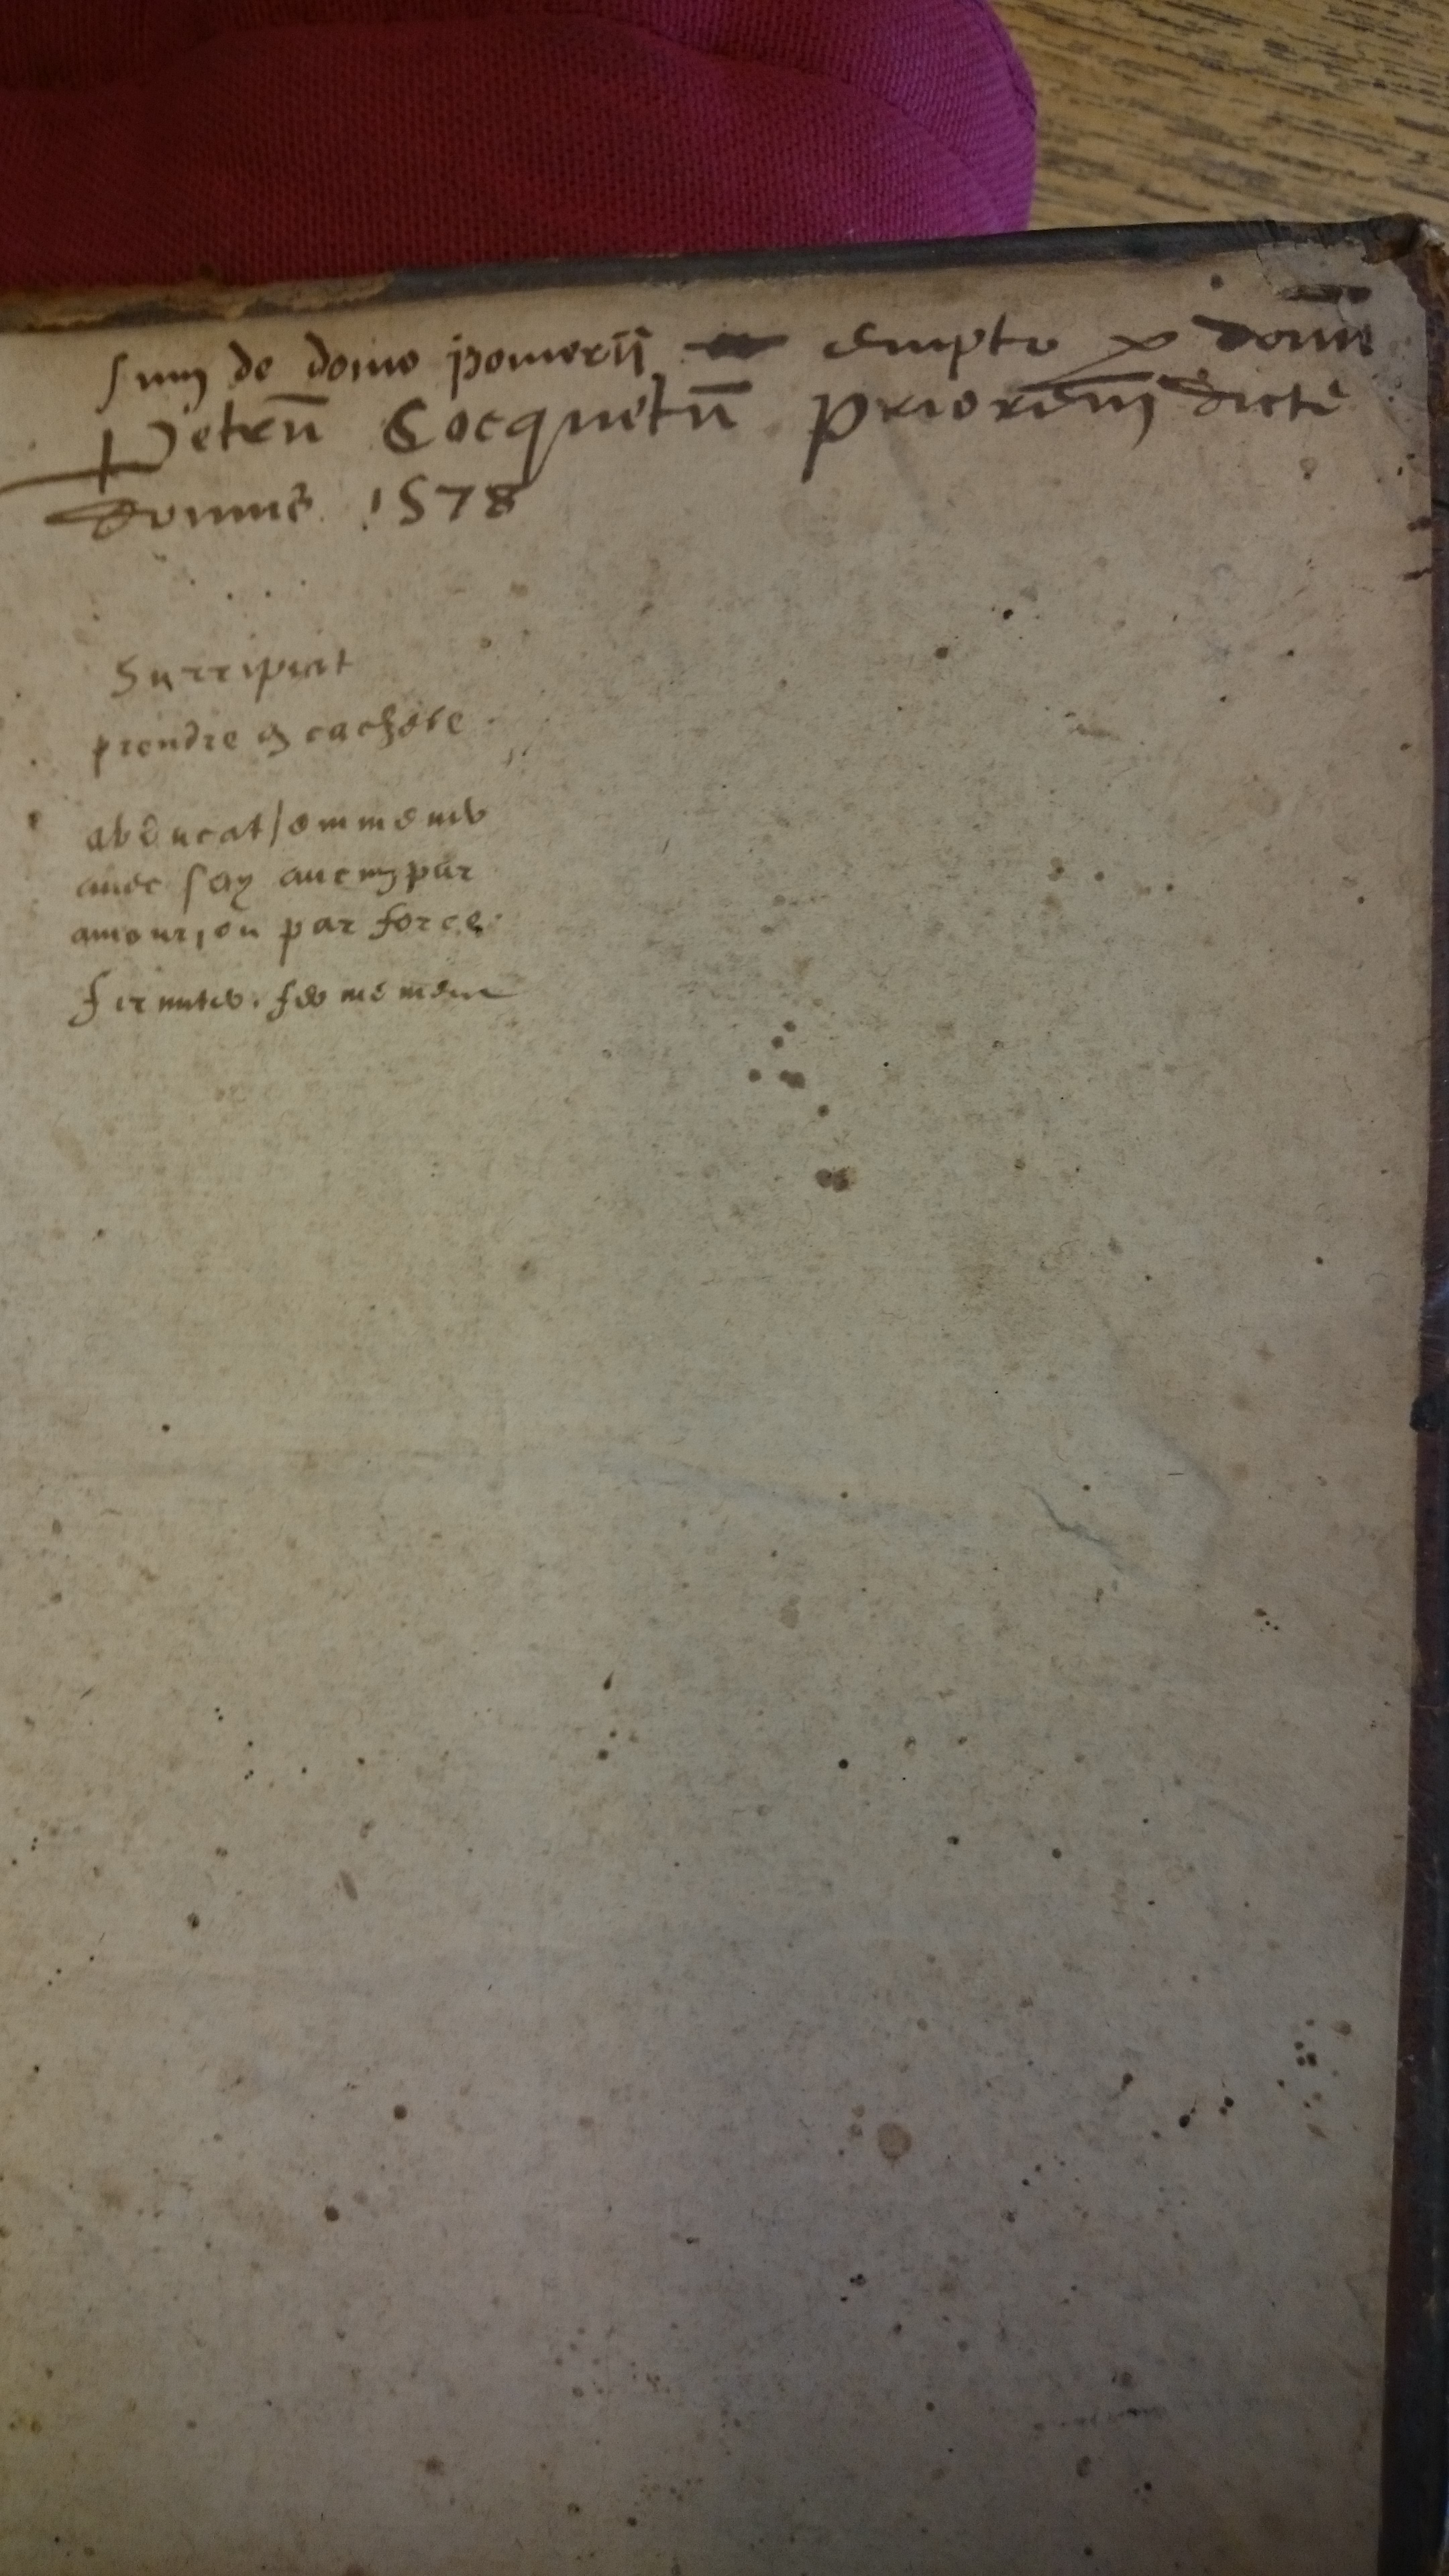 sum de domo pomerii empto p domn̄
Petrū Cocquetū priorēm dicte
domus 1578
Surripiat
prendre en cachete
abducat / emmener
avec soy aucun par
amour, ou par force.
firmiter. fermement